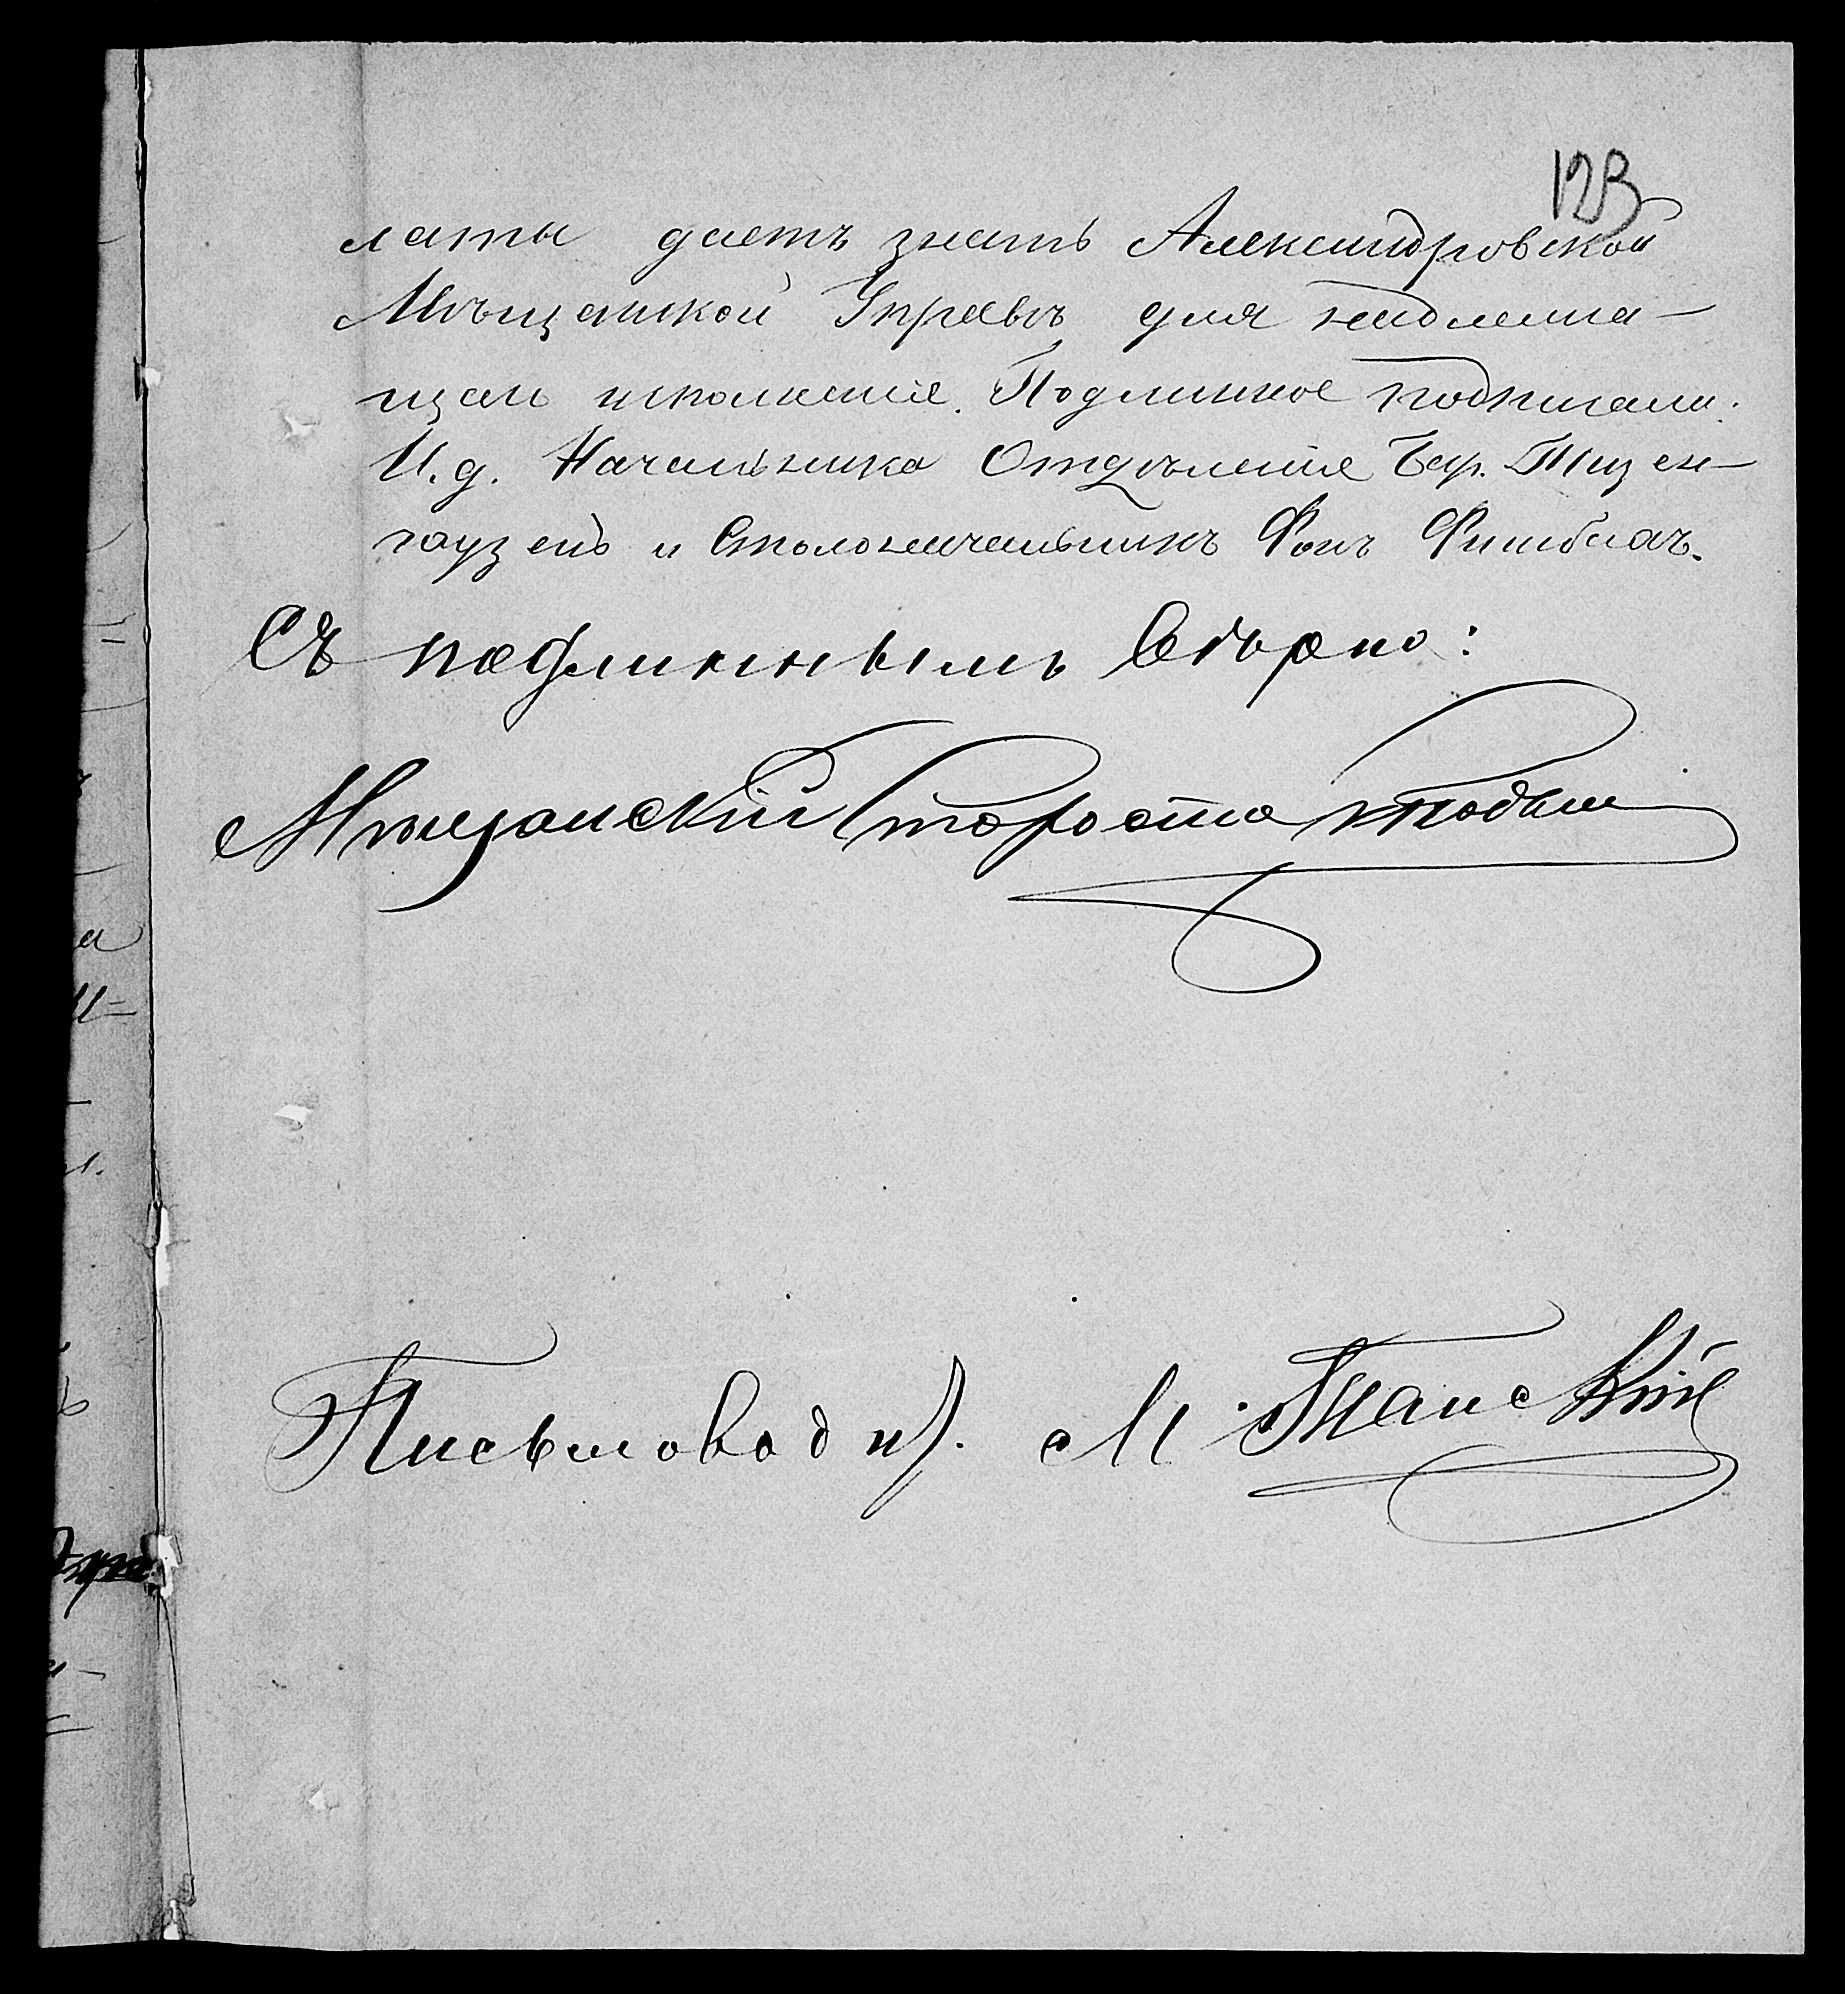 123
латы даетъ знать Александровской
Мѣщанской Управѣ для надлежа-
щаго исполненія. Подлинное подписали:
И. д. Начальника Отдѣленія Бар. Тизен-
гаузенъ и Столоначальникъ Фонъ
Съ подлиннымъ вѣрно:
Мѣщанскій Староста
Письмоводит. М. Танскій